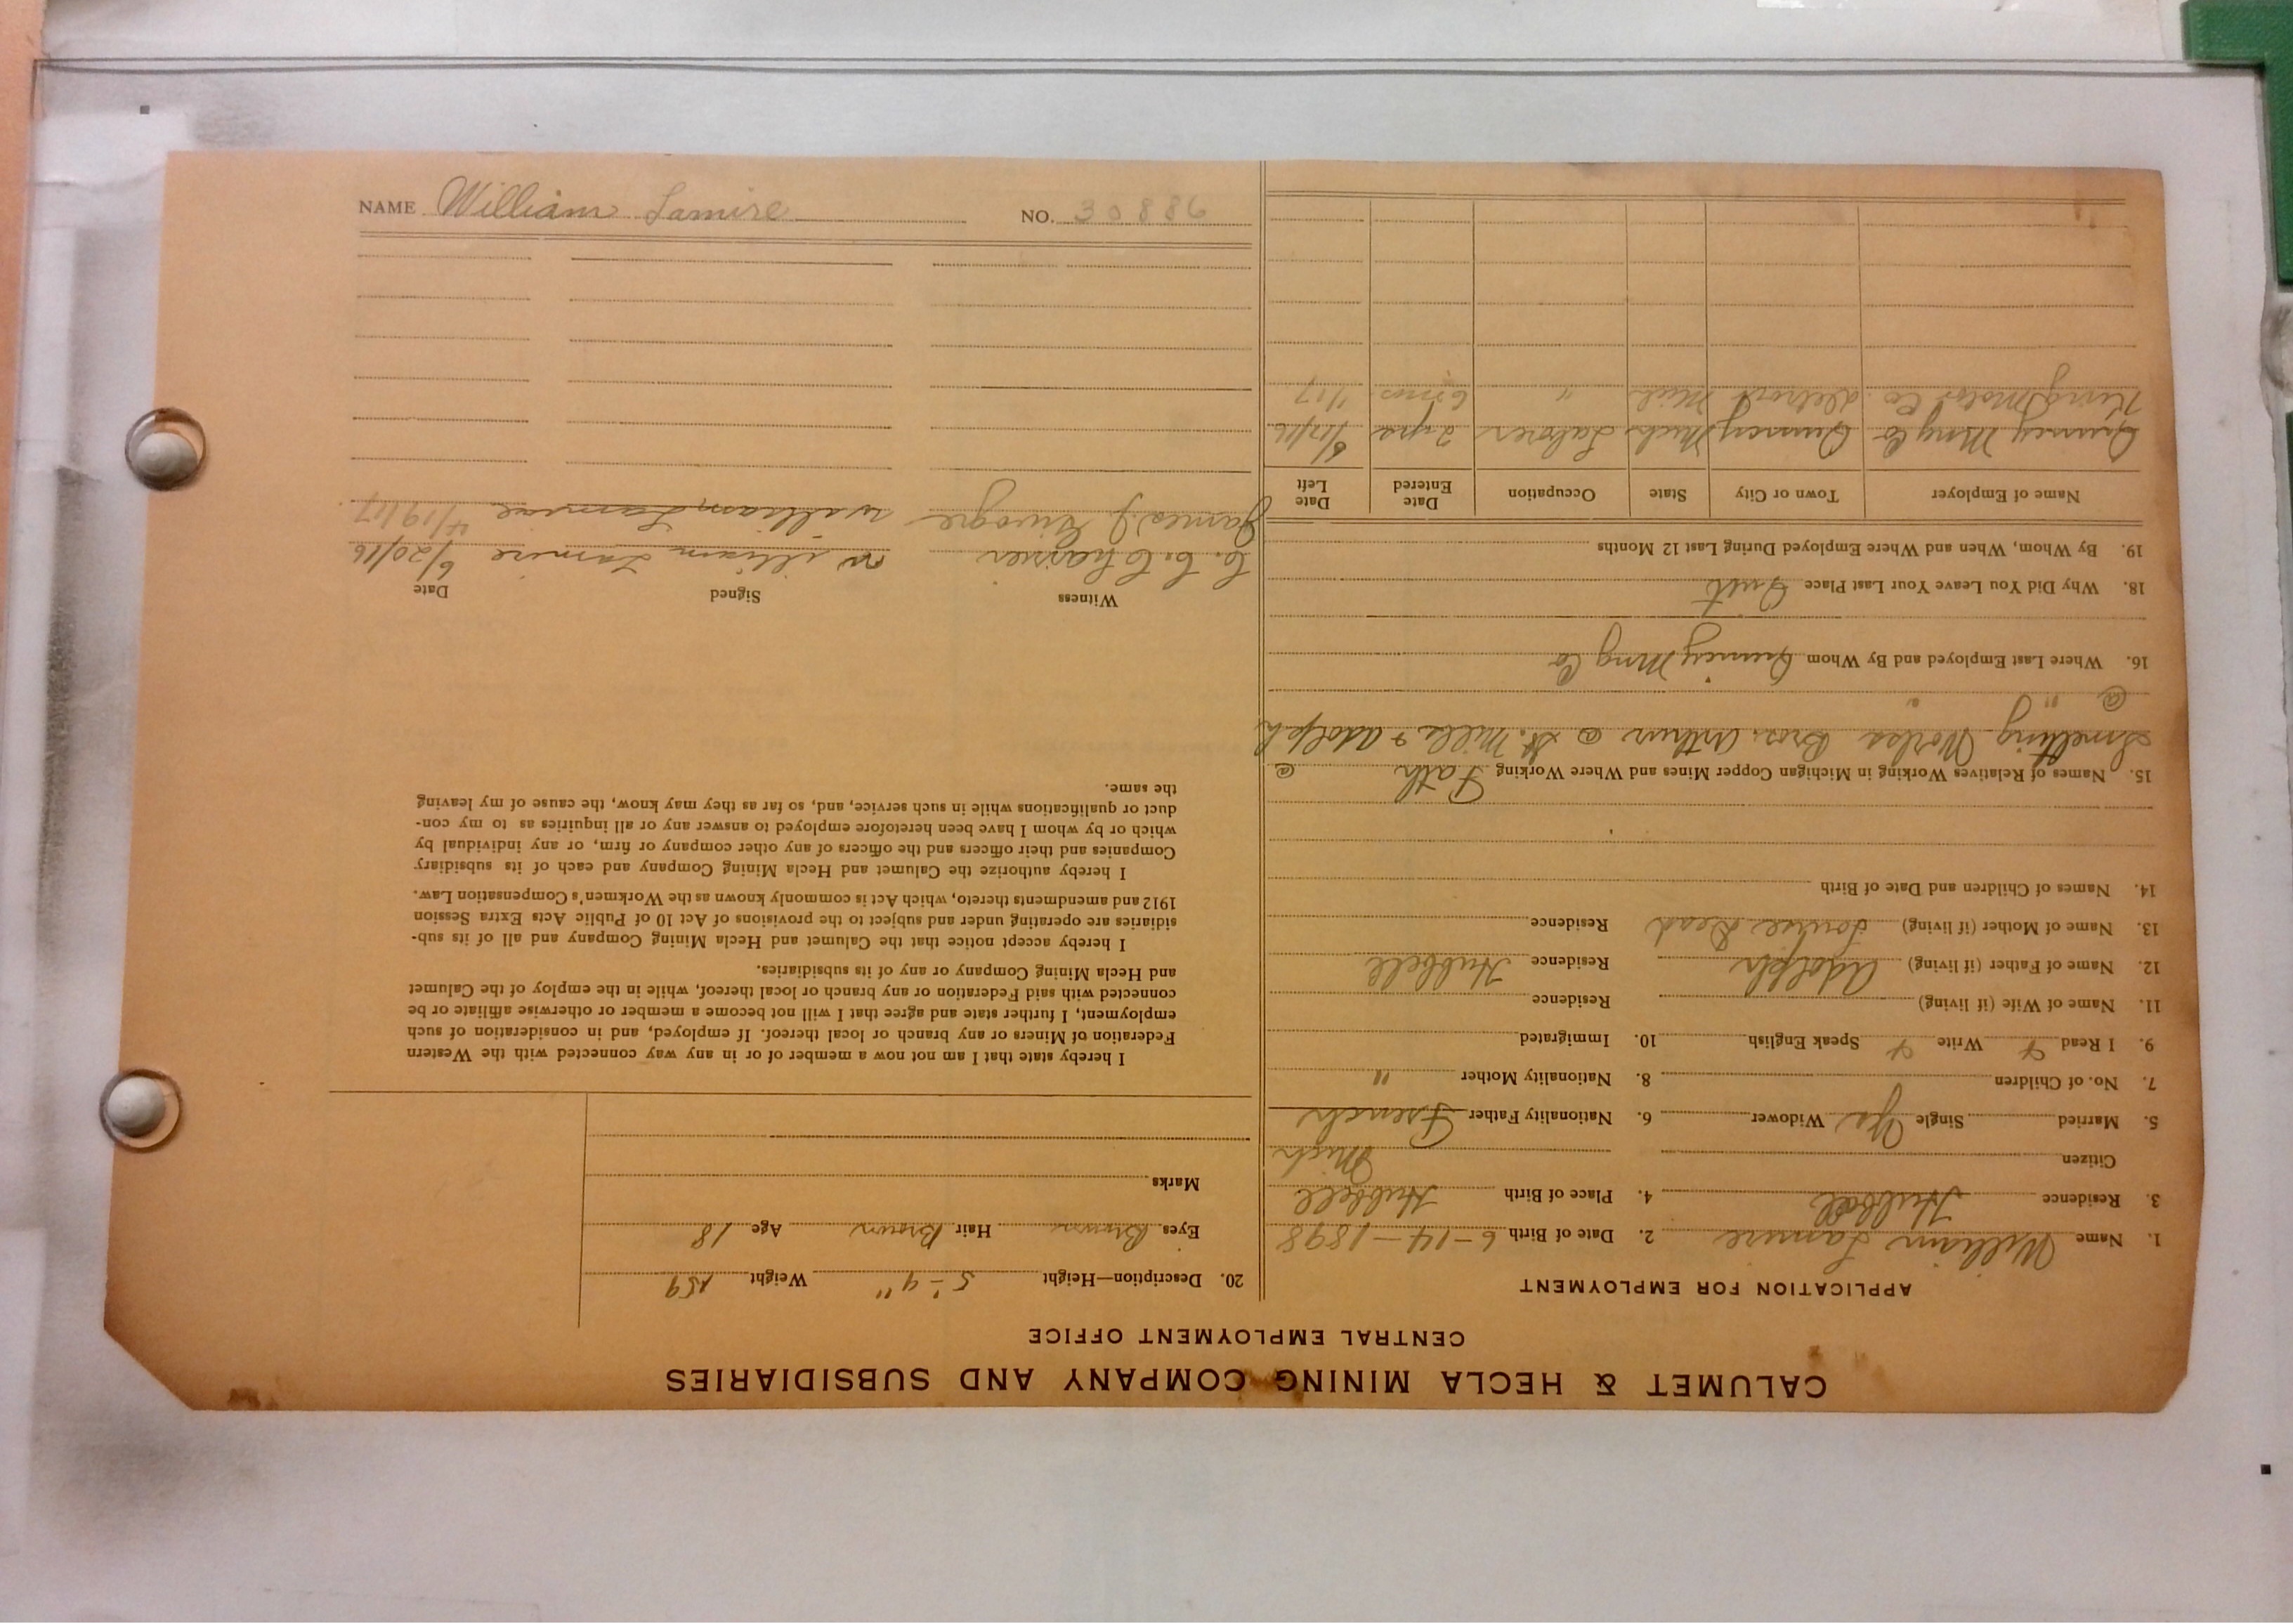 NAME William Lamire NO. 30886
CALUMET & HECLA MINING COMPANY AND SUBSIDIARIES
CENTRAL EMPLOYMENT OFFICE
APPLICATION FOR EMPLOYMENT
1. Name William Lamire 2. Date of Birth 6-14-1898
3. Residence Hubbell 4. Place of Birth Hubbell
Citizen Mich
5. Married Single Yes Widower 6. Nationality Father French
7. No. of Children 8. Nationality Mother "
9. I Read Write Speak English 10. Immigrated
11. Name of Wife (if living) Residence
12. Name of Father (if living) Adolph Residence Hubbell
13. Name of Mother (if living) Louise Dead Residence
14. Names of Children and Date of Birth
15. Names of Relatives Working in Michigan Copper Mines and Where Working Fath @
Smelting Works Bros. Arthur @ St. Mill & Adolph
@ " "
16. Where Last Employed and By Whom Quincy Mng Co
18. Why Did You Leave Your Last Place Quit
19. By Whom, When and Where Employed During Last 12 Months
Name of Employer Town or City State Occupation Date Entered Date Left
Quincy Mng Co Quincy Mich Laborer 2 yrs 6/12/16
King Motor Co. Detroit Mich " 6 mos. 1/17
20. Description—Height 5'-9" Weight 159
Eyes Brown Hair Brown Age 18
Marks
I hereby state that I am not now a member of or in any way connected with the Western
Federation of Miners or any branch or local thereof. If employed, and in consideration of such
employment, I further state and agree that I will not become a member or otherwise affiliate or be
connected with said Federation or any branch or local thereof, while in the employ of the Calumet
and Hecla Mining Company or any of its subsidiaries.
I hereby accept notice that the Calumet and Hecla Mining Company and all of its sub-
sidiaries are operating under and subject to the provisions of Act 10 of Public Acts Extra Session
1912 and amendments thereto, which Act is commonly known as the Workmen's Compensation Law.
I hereby authorize the Calumet and Hecla Mining Company and each of its subsidiary
Companies and their officers and the officers of any other company or firm, or any individual by
which or by whom I have been heretofore employed to answer any or all inquiries as to my con-
duct or qualifications while in such service, and, so far as they may know, the cause of my leaving
the same.
Witness Signed Date
C. C. William Lamire 6/20/16
James J. William Lamirae 4/19/17